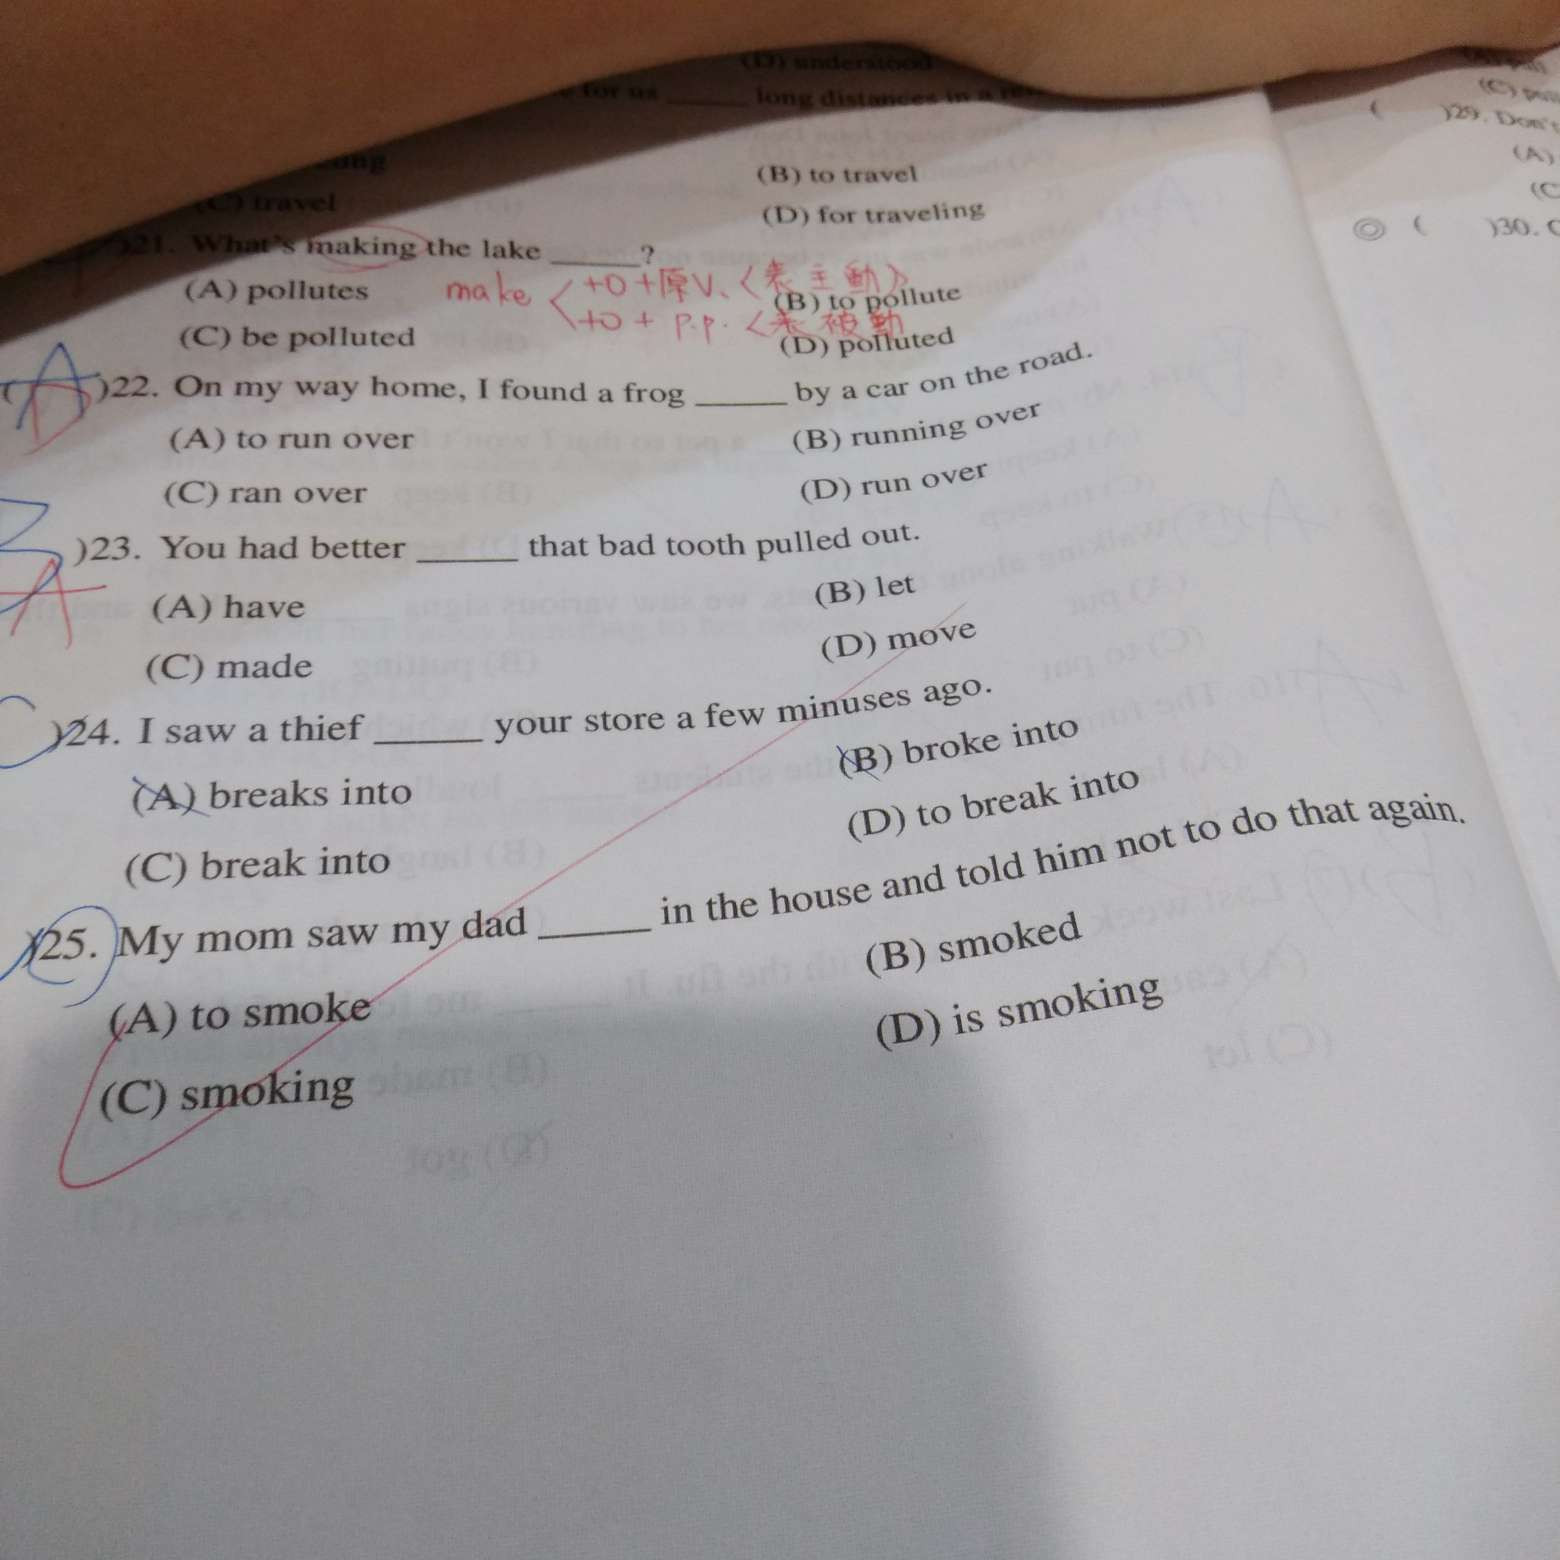 (D) understood
for us ______ long distances in a
(B) to travel
(C) travel
(D) for traveling
)21. What's making the lake ______?
(A) pollutes
make < +O+原V. <表主動>
+O + p.p. <表被動
(B) to pollute
(C) be polluted
(D) polluted
( A D )22. On my way home, I found a frog ______ by a car on the road.
(A) to run over
(B) running over
(C) ran over
(D) run over
B A )23. You had better ______ that bad tooth pulled out.
(A) have
(B) let
(C) made
(D) move
C )24. I saw a thief ______ your store a few minuses ago.
(A) breaks into
(B) broke into
(C) break into
(D) to break into
)25. My mom saw my dad ______ in the house and told him not to do that again.
(A) to smoke
(B) smoked
(C) smoking
(D) is smoking
(C)
( )29. Don't
(A)
(C
◎ ( )30.